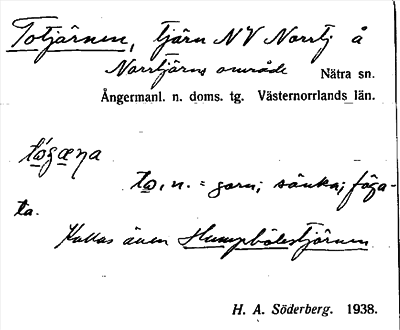 Totjärnen, tjärn NV Norrtj å
Norrtjärns område Nätra sn.
Ångermanl. n. doms. tg. Västernorrlands län.
to, n. = garn; sänka;
ta.
Kallas även Humpbölestjärnen
H. A. Söderberg. 1938.